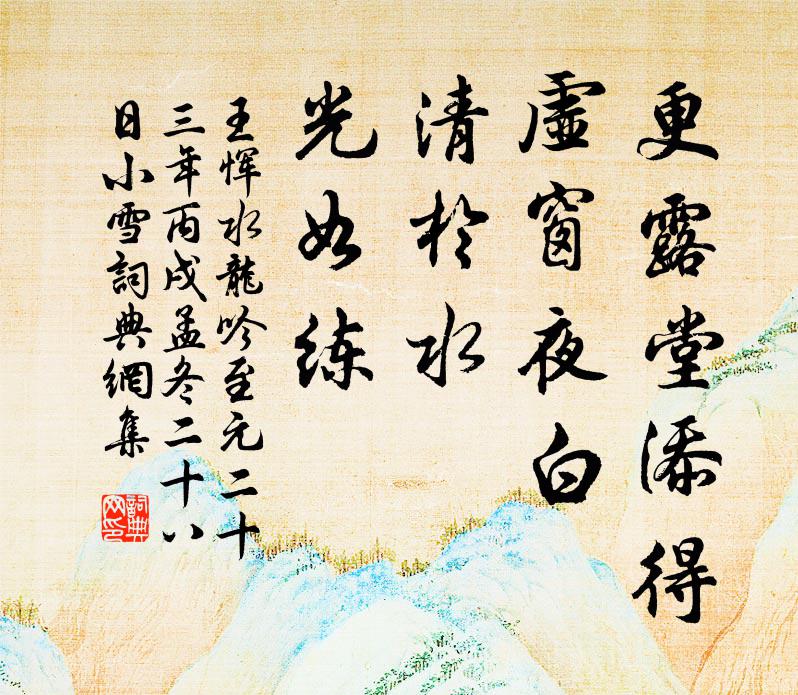 更露堂添得
虚窗夜白
清於水
光如练
王恽水龍吟至元二十
三年丙戌孟冬二十八
日小雪詞典網集
詞典
网印